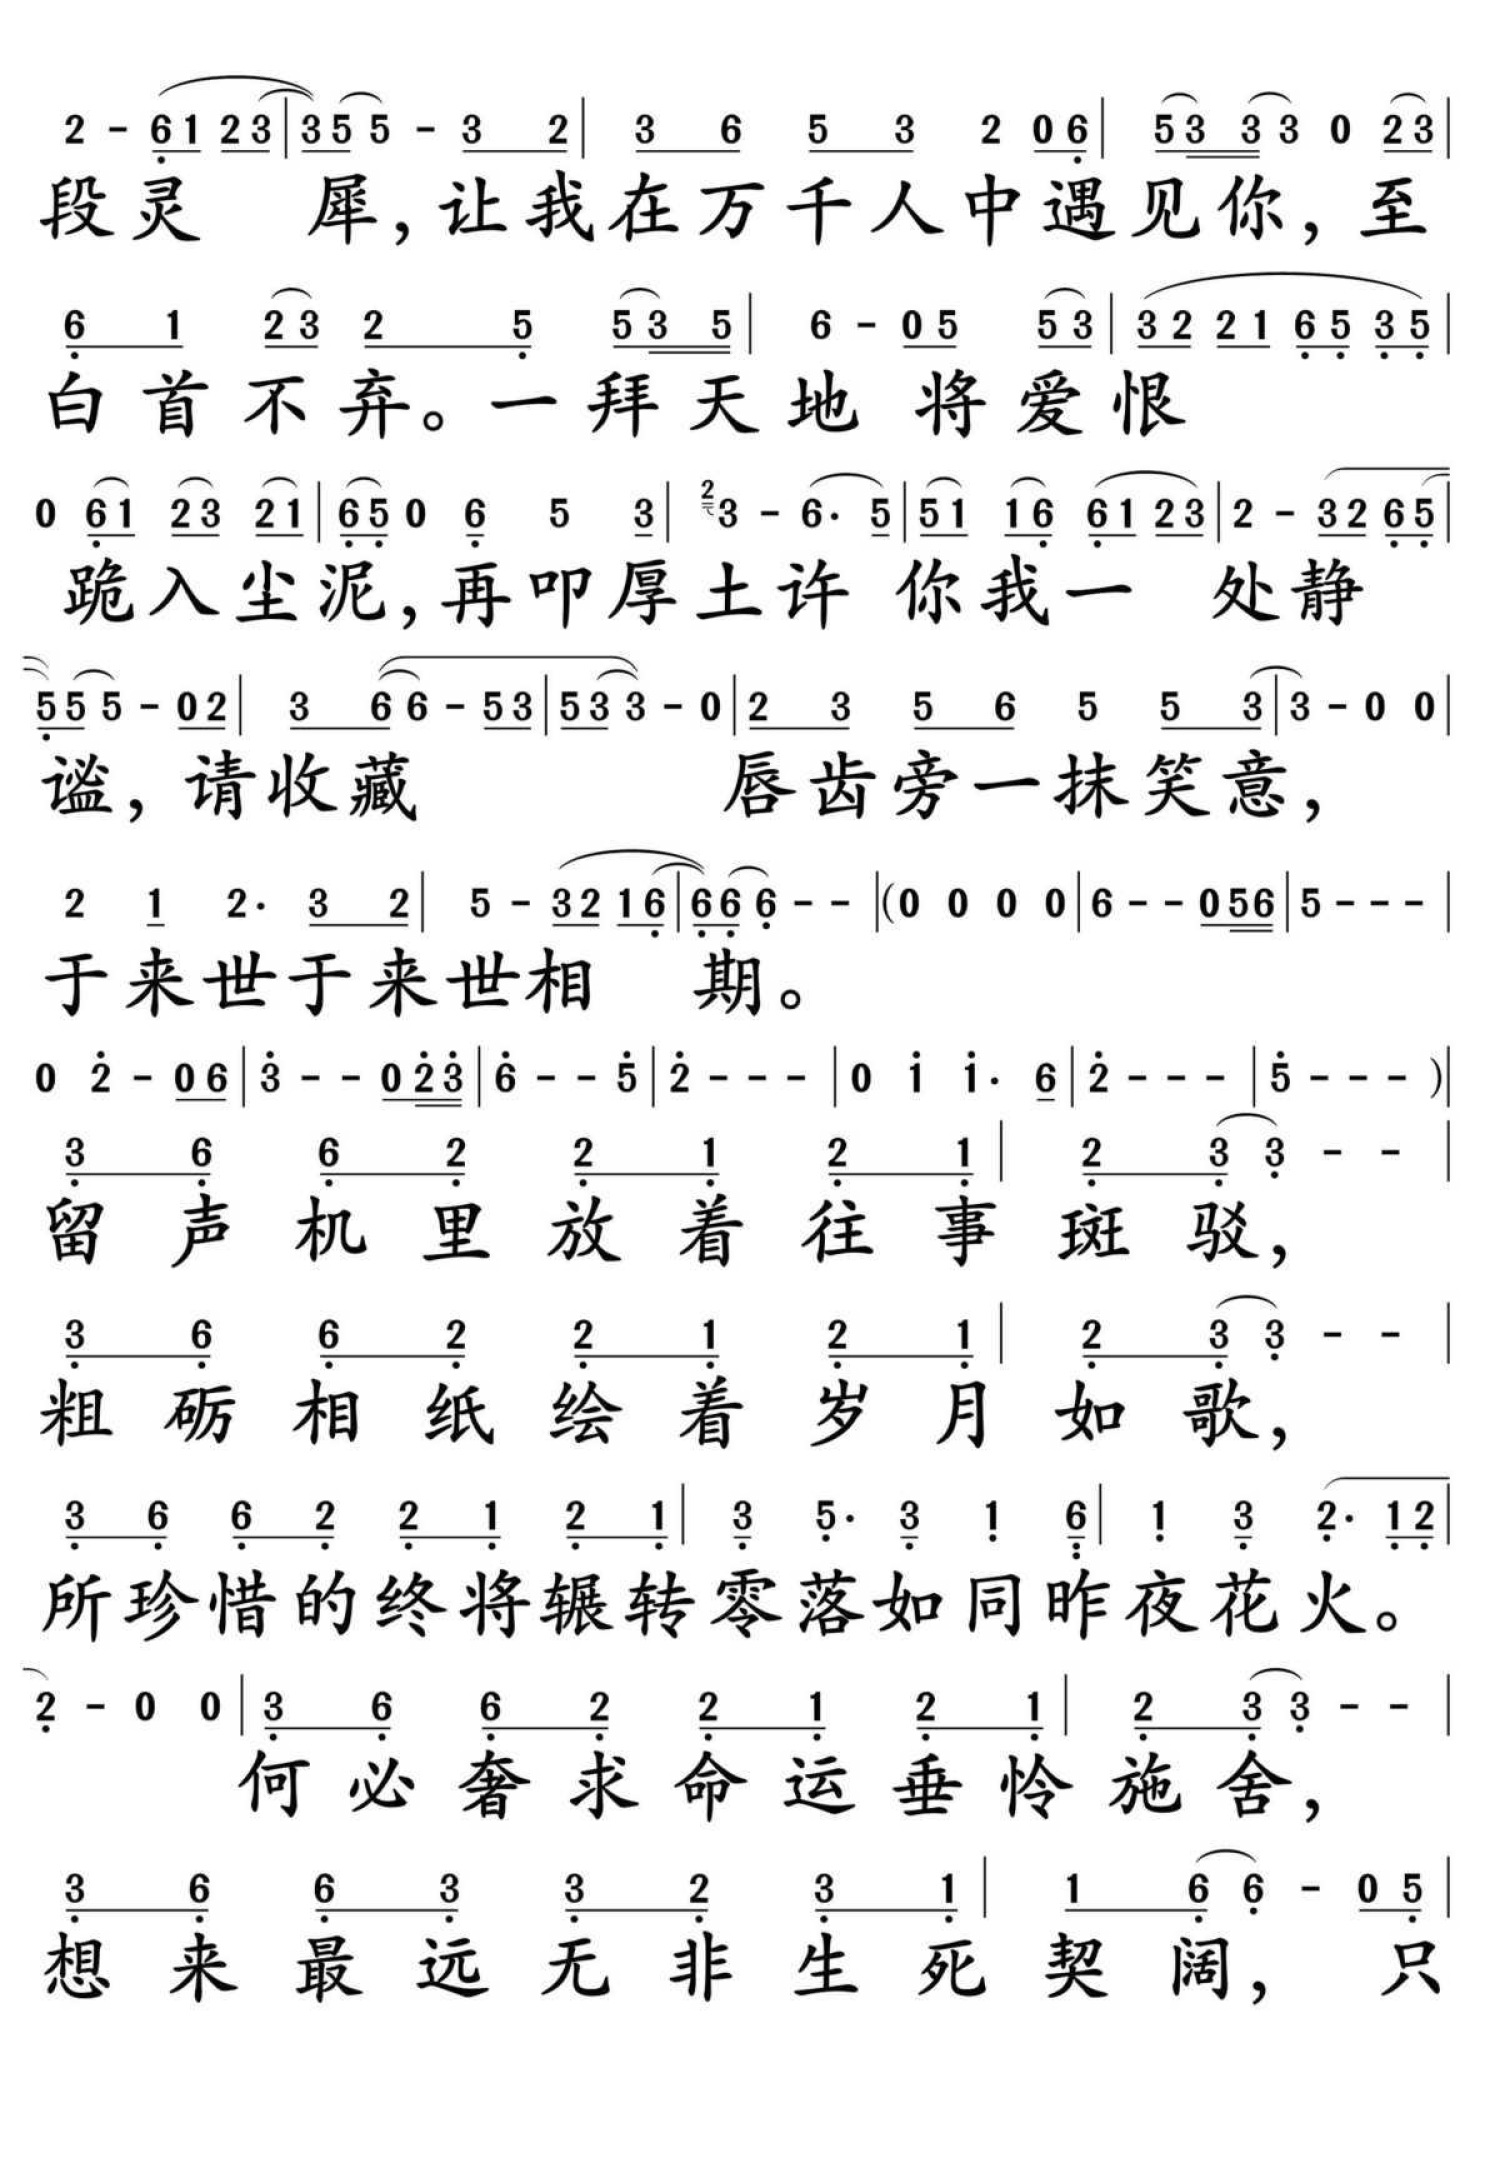 2 - 6̣ 1 2 3 | 3 5 5 - 3 2 | 3 6 5 3 2 0 6̣ | 5 3 3 3 0 2 3 |
段灵 犀，让我在万千人中遇见你，至
6̣ 1 2 3 2 5̣ 5 3 5 | 6 - 0 5 5 3 | 3 2 2 1 6̣ 5̣ 3̣ 5̣ |
白首不弃。一拜天地 将爱恨
0 6̣ 1 2 3 2 1 | 6̣ 5̣ 0 6̣ 5 3 | 2 3 - 6· 5 | 5 1 1 6̣ 6̣ 1 2 3 | 2 - 3 2 6̣ 5̣ |
跪入尘泥，再叩厚土许 你我一 处静
5̣ 5 5 - 0 2 | 3 6 6 - 5 3 | 5 3 3 - 0 | 2 3 5 6 5 5 3 | 3 - 0 0 |
谧，请收藏 唇齿旁一抹笑意，
2 1 2· 3 2 | 5 - 3 2 1 6̣ | 6̣ 6̣ 6̣ - - | (0 0 0 0 | 6 - - 0 5 6 | 5 - - - |
于来世于来世相 期。
0 2̇ - 0 6 | 3̇ - - 0 2̇ 3̇ | 6̇ - - 5̇ | 2̇ - - - | 0 1̇ 1̇· 6 | 2̇ - - - | 5̇ - - - )|
3̣ 6̣ 6̣ 2̣ 2̣ 1̣ 2̣ 1̣ | 2̣ 3̣ 3̣ - - |
留声机里放着往事斑驳，
3̣ 6̣ 6̣ 2̣ 2̣ 1̣ 2̣ 1̣ | 2̣ 3̣ 3̣ - - |
粗砺相纸绘着岁月如歌，
3̣ 6̣ 6̣ 2̣ 2̣ 1̣ 2̣ 1̣ | 3̣ 5̣· 3̣ 1̣ 6̣̣ | 1̣ 3̣ 2̣· 1̣ 2̣ |
所珍惜的终将辗转零落如同昨夜花火。
2̣ - 0 0 | 3̣ 6̣ 6̣ 2̣ 2̣ 1̣ 2̣ 1̣ | 2̣ 3̣ 3̣ - - |
何必奢求命运垂怜施舍，
3̣ 6̣ 6̣ 3̣ 3̣ 2̣ 3̣ 1̣ | 1 6̣ 6̣ - 0 5̣ |
想来最远无非生死契阔，只